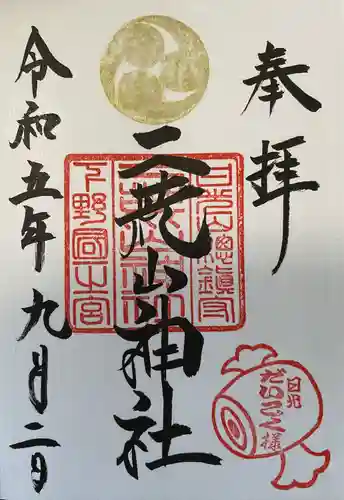 奉拝
二荒山神社
令和五年九月二日
日光總鎮守
下野國一之宮
日光
だいこく様